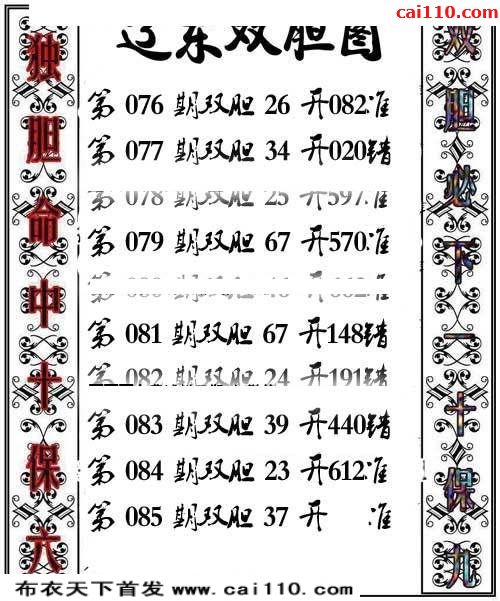 cai110.com
辽东双胆图
独胆命中十保六
第 076 期双胆 26 开082准
第 077 期双胆 34 开020错
第 078 期双胆 25 开597准
第 079 期双胆 67 开570准
第 081 期双胆 67 开148错
第 082 期双胆 24 开191错
第 083 期双胆 39 开440错
第 084 期双胆 23 开612准
第 085 期双胆 37 开 准
双胆必下二十保九
布衣天下首发 www.cai110.com